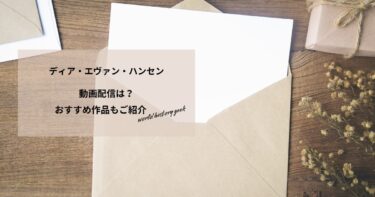 ディア・エヴァン・ハンセン
動画配信は?
おすすめ作品もご紹介
world history geek